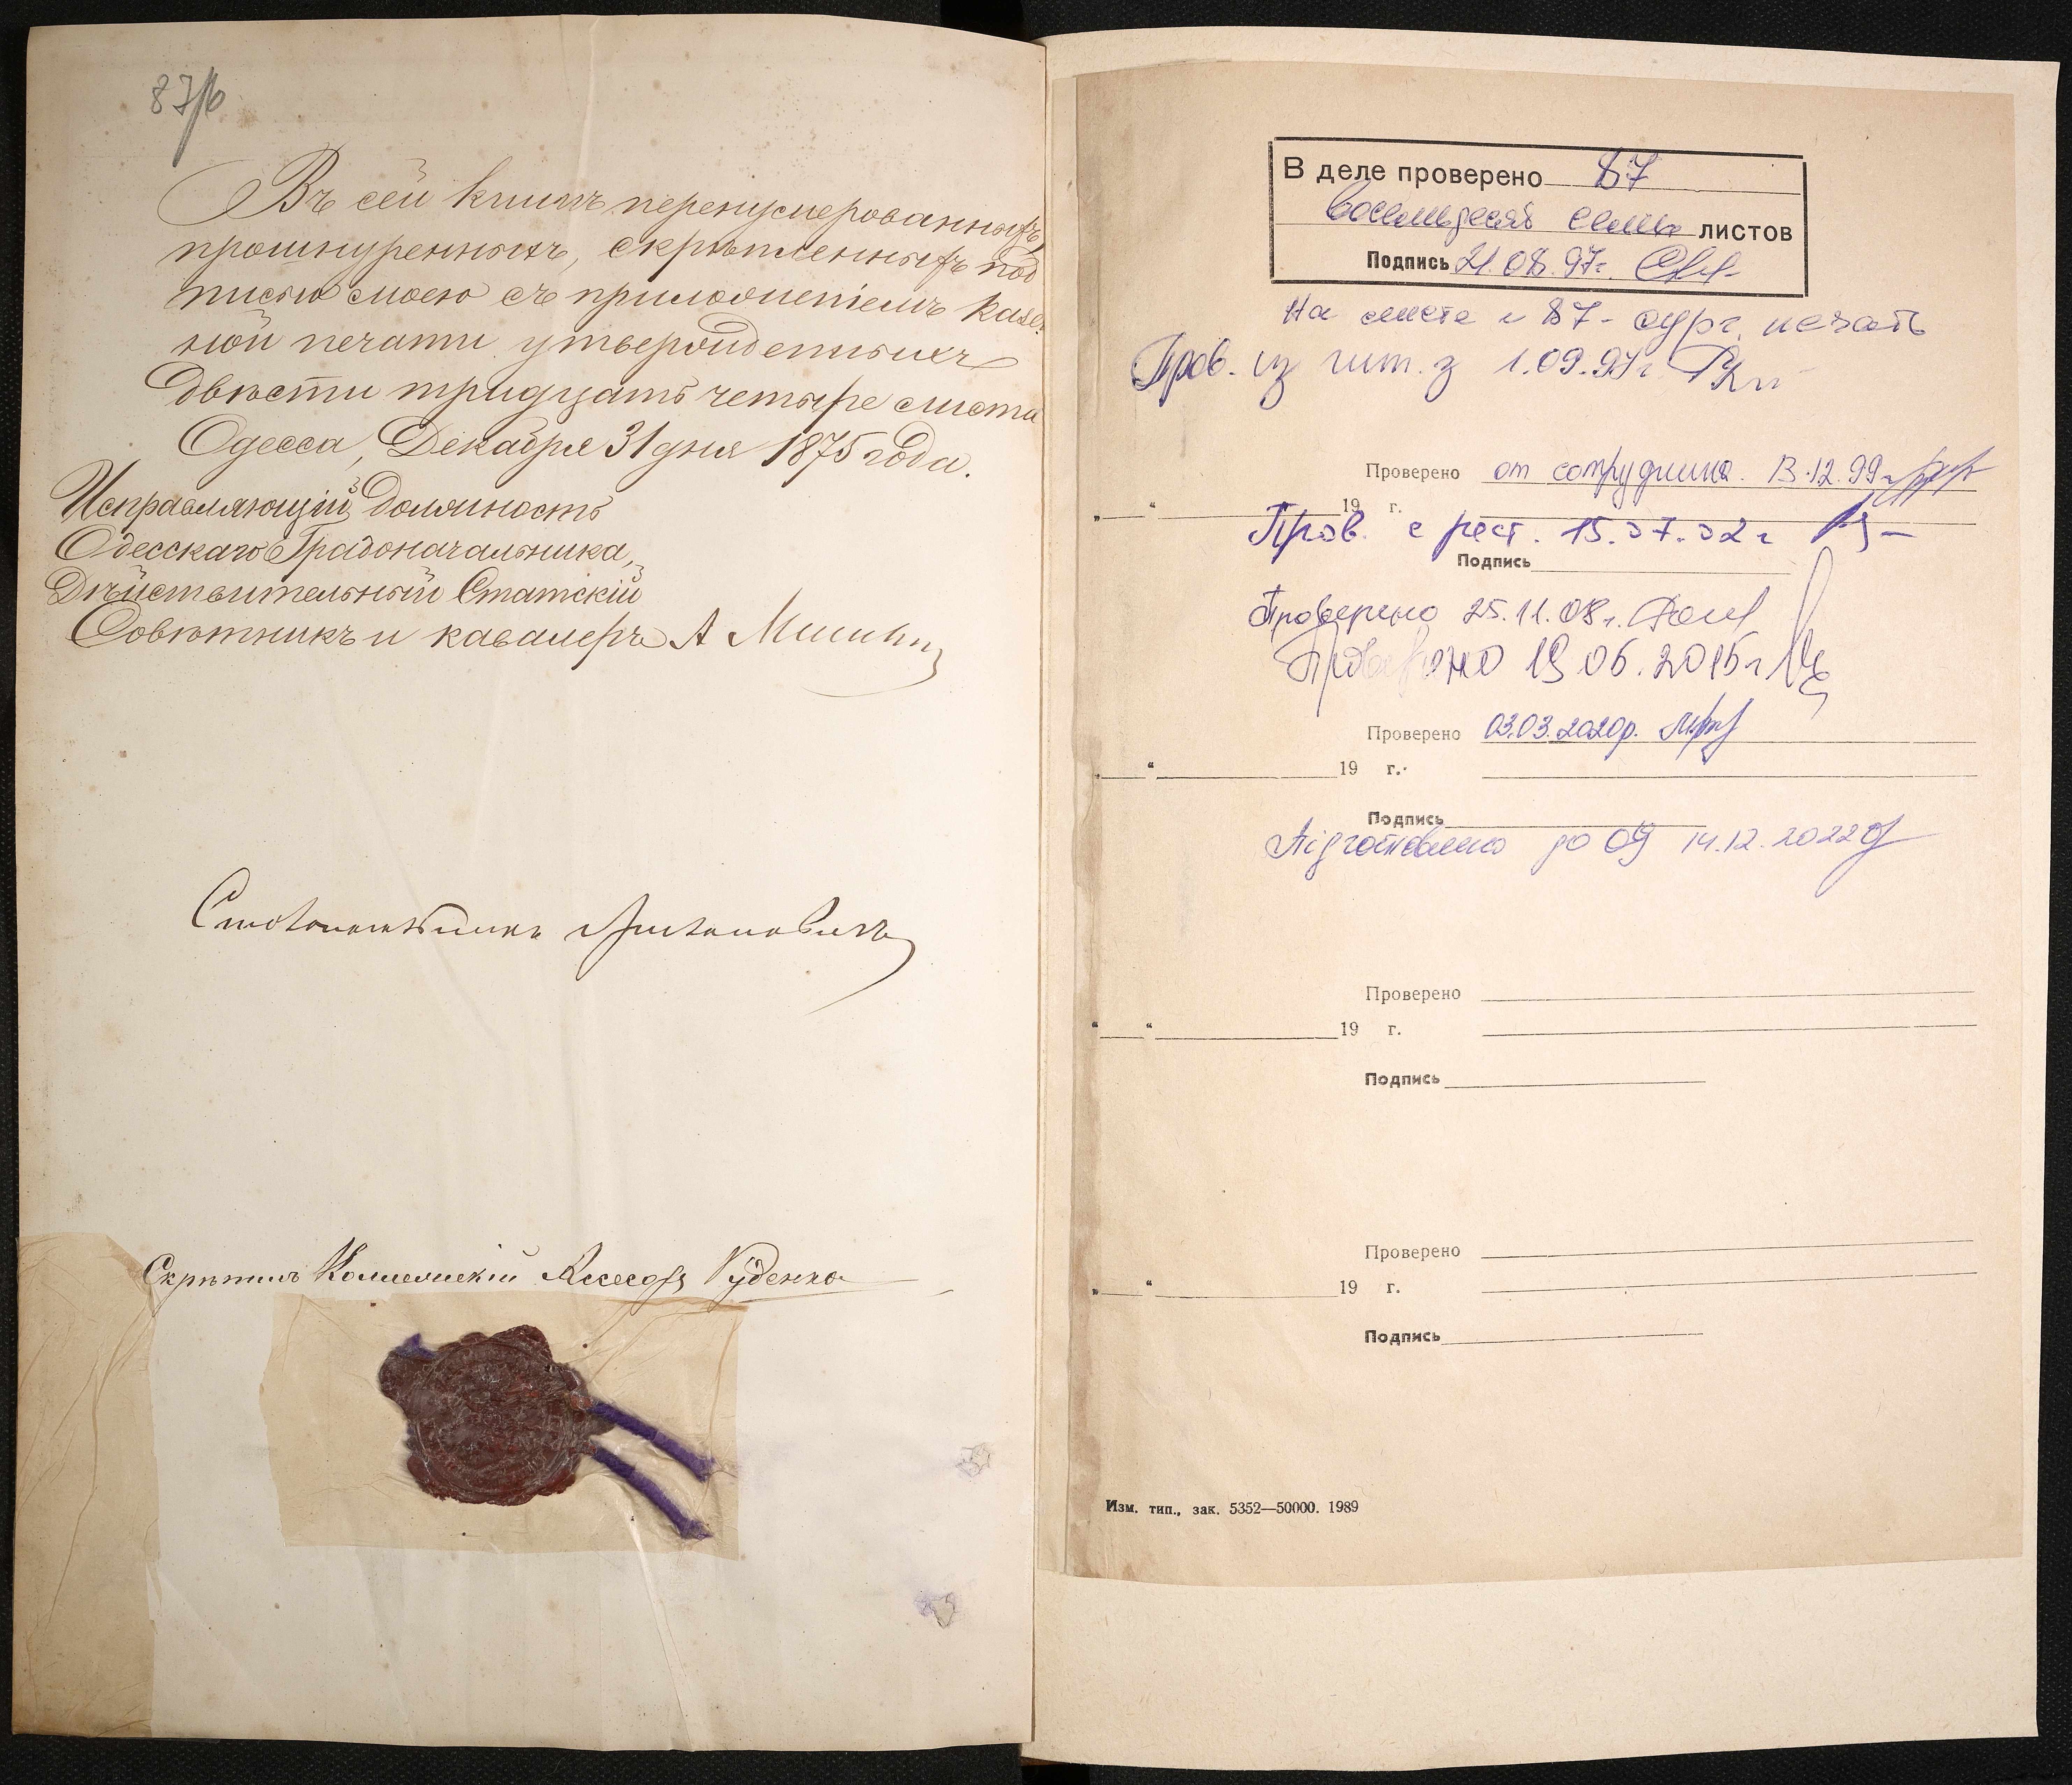 87
Въ сей книгѣ перенумерованныхъ,
прошнуренныхъ, скрѣпленныхъ под
писью моею съ приложеніемъ казен
ной печати утвержденныхъ
двѣсти тридцать четыре листа
Одесса, Декабря 31 дня 1875 года.
Исправляющій должность
Одесскаго Градоначальника,
Дѣйствительный Статскій
Совѣтникъ и кавалеръ А
Столоначальникъ
Скрѣпилъ Коллежскій Асесоръ Руденко
В деле проверено 87
восемьдесят семь листов
Подпись 21.08.97г.
На листе 87 - сург. печать
Пров. из чит. з 1.09.97г
Проверено от сотрудника. 13.12.99г
„ “ 19 г.
Пров. с рест. 15.07.02г
Подпись
Проверено 25.11.08г.
Проверено 19 06. 2015г
Проверено 03.03.2020р.
„ “ 19 г.
Подпись
Підготовлено до 14.12.2022
Проверено
“ “ 19 г.
Подпись
Проверено
„ “ 19 г.
Подпись
Изм. тип., зак. 5352—50000. 1989